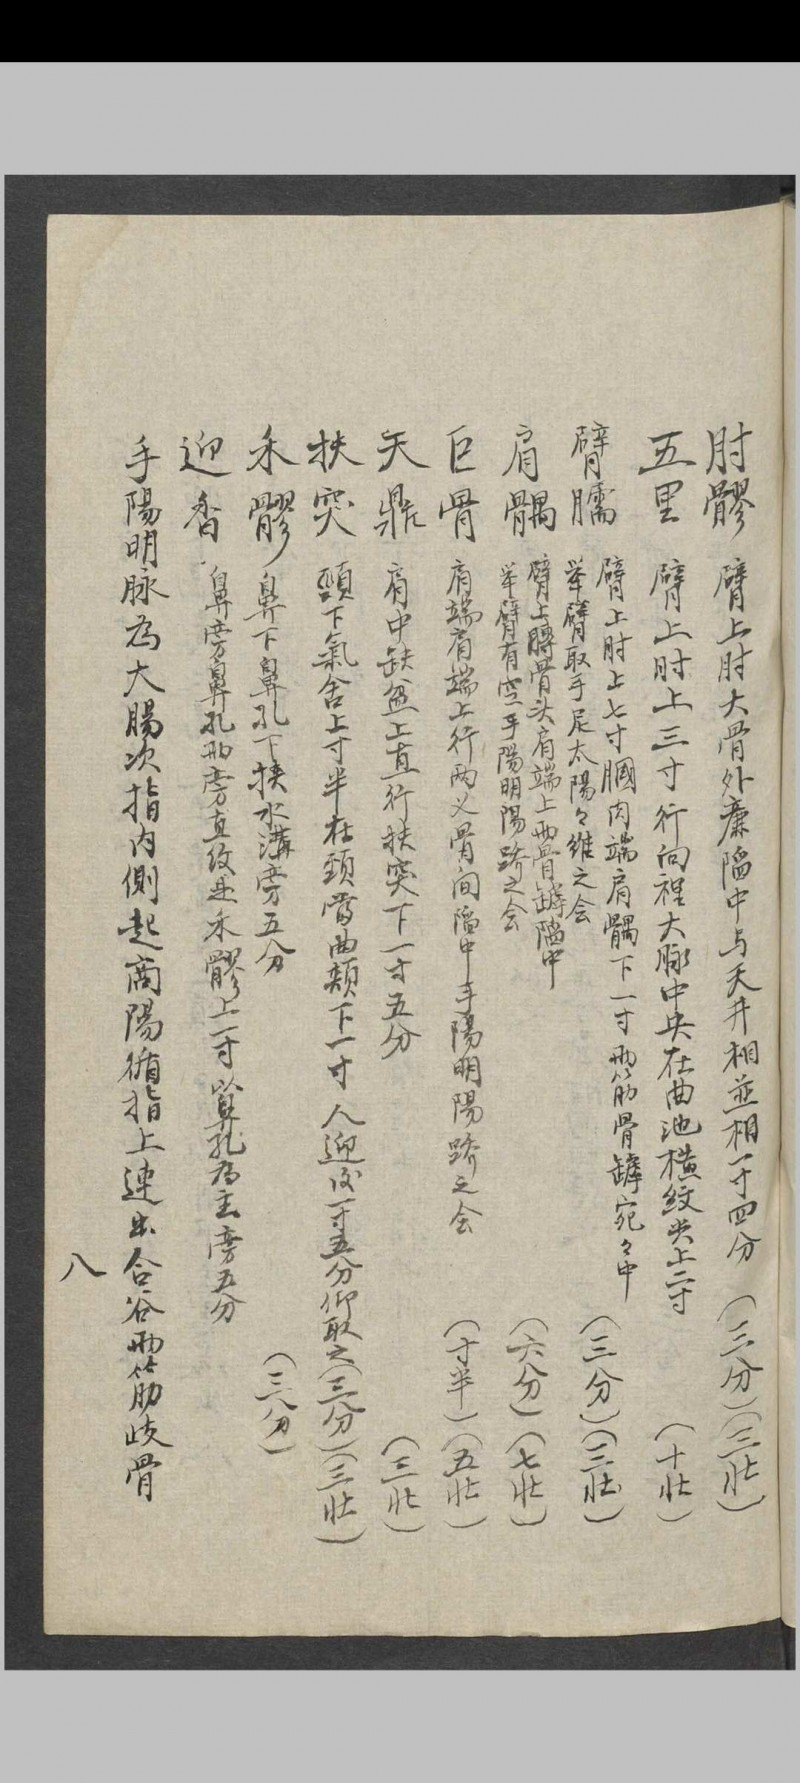 肘髎 臂上肘大骨外廉陷中与天井相並相一寸四分（三分）（三壯）
五里 臂上肘上三寸行向裡大脉中央在曲池橫紋尖上二寸（十壯）
臂臑 臂上肘上七寸膕肉端肩髃下一寸兩筋骨罅宛々中
舉臂取手足太陽々維之会（三分）（三壯）
肩髃 臂上膊骨头肩端上兩骨罅陷中
举臂有空手陽明陽蹻之会（六分）（七壯）
巨骨 肩端肩端上行两义骨间陷中手陽明陽蹻之会（寸半）（五壯）
天鼎 肩中缺盆上直行扶突下一寸五分（三壯）
扶突 頸下氣舍上寸半在頸當曲頰下一寸人迎後一寸五分仰取之（三分）（三壯）
禾髎 鼻下鼻孔下挾水溝旁五分（三分）
迎香 鼻旁鼻孔兩旁直紋是禾髎上一寸以鼻孔为主旁五分
手陽明脉为大腸次指內側起商陽循指上連出合谷兩筋歧骨
八